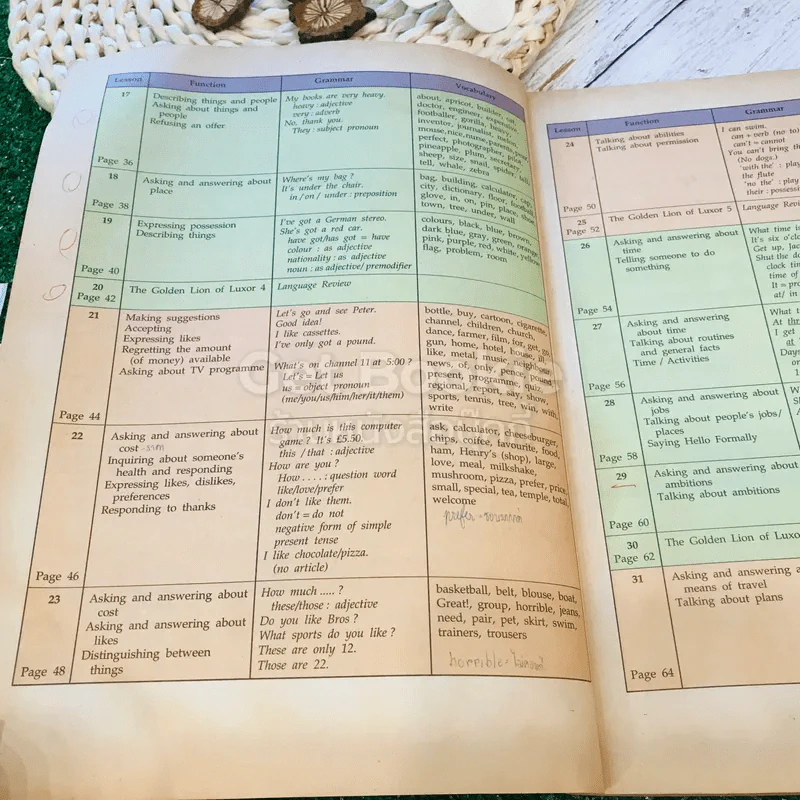 Lesson Function Grammar Vocabulary
17
Describing things and people
Asking about things and
people
Refusing an offer
Page 36
My books are very heavy.
heavy : adjective
very : adverb
No, thank you.
They : subject pronoun
about, apricot, builder, cat,
doctor, engineer, expensive
footballer, gorilla, heavy,
inventor, journalist, melon,
mouse, nice, nurse, parent, pear
perfect, photographer, pilot
pineapple, plum, secretary
sheep, size, snail, spider, tall,
tell, whale, zebra
18
Asking and answering about
place
Page 38
Where's my bag ?
It's under the chair.
in / on / under : preposition
bag, building, calculator, cap,
city, dictionary, floor, football
glove, in, on, pin, place, shoe
town, tree, under, wall
19
Expressing possession
Describing things
Page 40
I've got a German stereo.
She's got a red car.
have got/has got = have
colour : as adjective
nationality : as adjective
noun : as adjective/premodifier
colours, black, blue, brown,
dark blue, gray, green, orange
pink, purple, red, white, yellow
flag, problem, room
20
Page 42
The Golden Lion of Luxor 4
Language Review
21
Making suggestions
Accepting
Expressing likes
Regretting the amount
(of money) available
Asking about TV programme
Page 44
Let's go and see Peter.
Good idea!
I like cassettes.
I've only got a pound.
What's on channel 11 at 5:00 ?
Let's = Let us
us = object pronoun
(me/you/us/him/her/it/them)
bottle, buy, cartoon, cigarette,
channel, children, church,
dance, farmer, film, for, get, go,
gun, home, hotel, house, ill,
like, metal, music, neighbour
news, of, only, pence, pound,
present, programme, quiz,
regional, report, say, show,
sports, tennis, tree, win, with,
write
22
Asking and answering about
cost
Inquiring about someone's
health and responding
Expressing likes, dislikes,
preferences
Responding to thanks
Page 46
How much is this computer
game ? It's £5.50.
this / that : adjective
How are you ?
How . . . . : question word
like/love/prefer
I don't like them.
don't = do not
negative form of simple
present tense
I like chocolate/pizza.
(no article)
ask, calculator, cheeseburger,
chips, coifee, favourite, food,
ham, Henry's (shop), large,
love, meal, milkshake,
mushroom, pizza, prefer, price,
small, special, tea, temple, total,
welcome
prefer =
23
Asking and answering about
cost
Asking and answering about
likes
Distinguishing between
things
Page 48
How much ..... ?
these/those : adjective
Do you like Bros ?
What sports do you like ?
These are only 12.
Those are 22.
basketball, belt, blouse, boat,
Great!, group, horrible, jeans,
need, pair, pet, skirt, swim,
trainers, trousers
horrible =
Lesson Function Grammar
24
Talking about abilities
Talking about permission
Page 50
I can swim.
can + verb (no to)
can't = cannot
You can't bring th
(No dogs.)
'with the' : play
the flute
"no the' : play
their : possess
25
Page 52
The Golden Lion of Luxor 5
Language Revi
26
Asking and answering about
time
Telling someone to do
something
Page 54
What time is
It's six o'clo
Get up, lac
Shut the do
clock tim
time of
It = pro
at/ in
27
Asking and answering
about time
Talking about routines
and general facts
Time / Activities
Page 56
What t
At thr
I get
at
Days
on
28
Asking and answering about
jobs
Talking about people's jobs/
places
Saying Hello Formally
Page 58
29
Asking and answering about
ambitions
Talking about ambitions
Page 60
30
Page 62
The Golden Lion of Luxo
31
Asking and answering a
means of travel
Talking about plans
Page 64